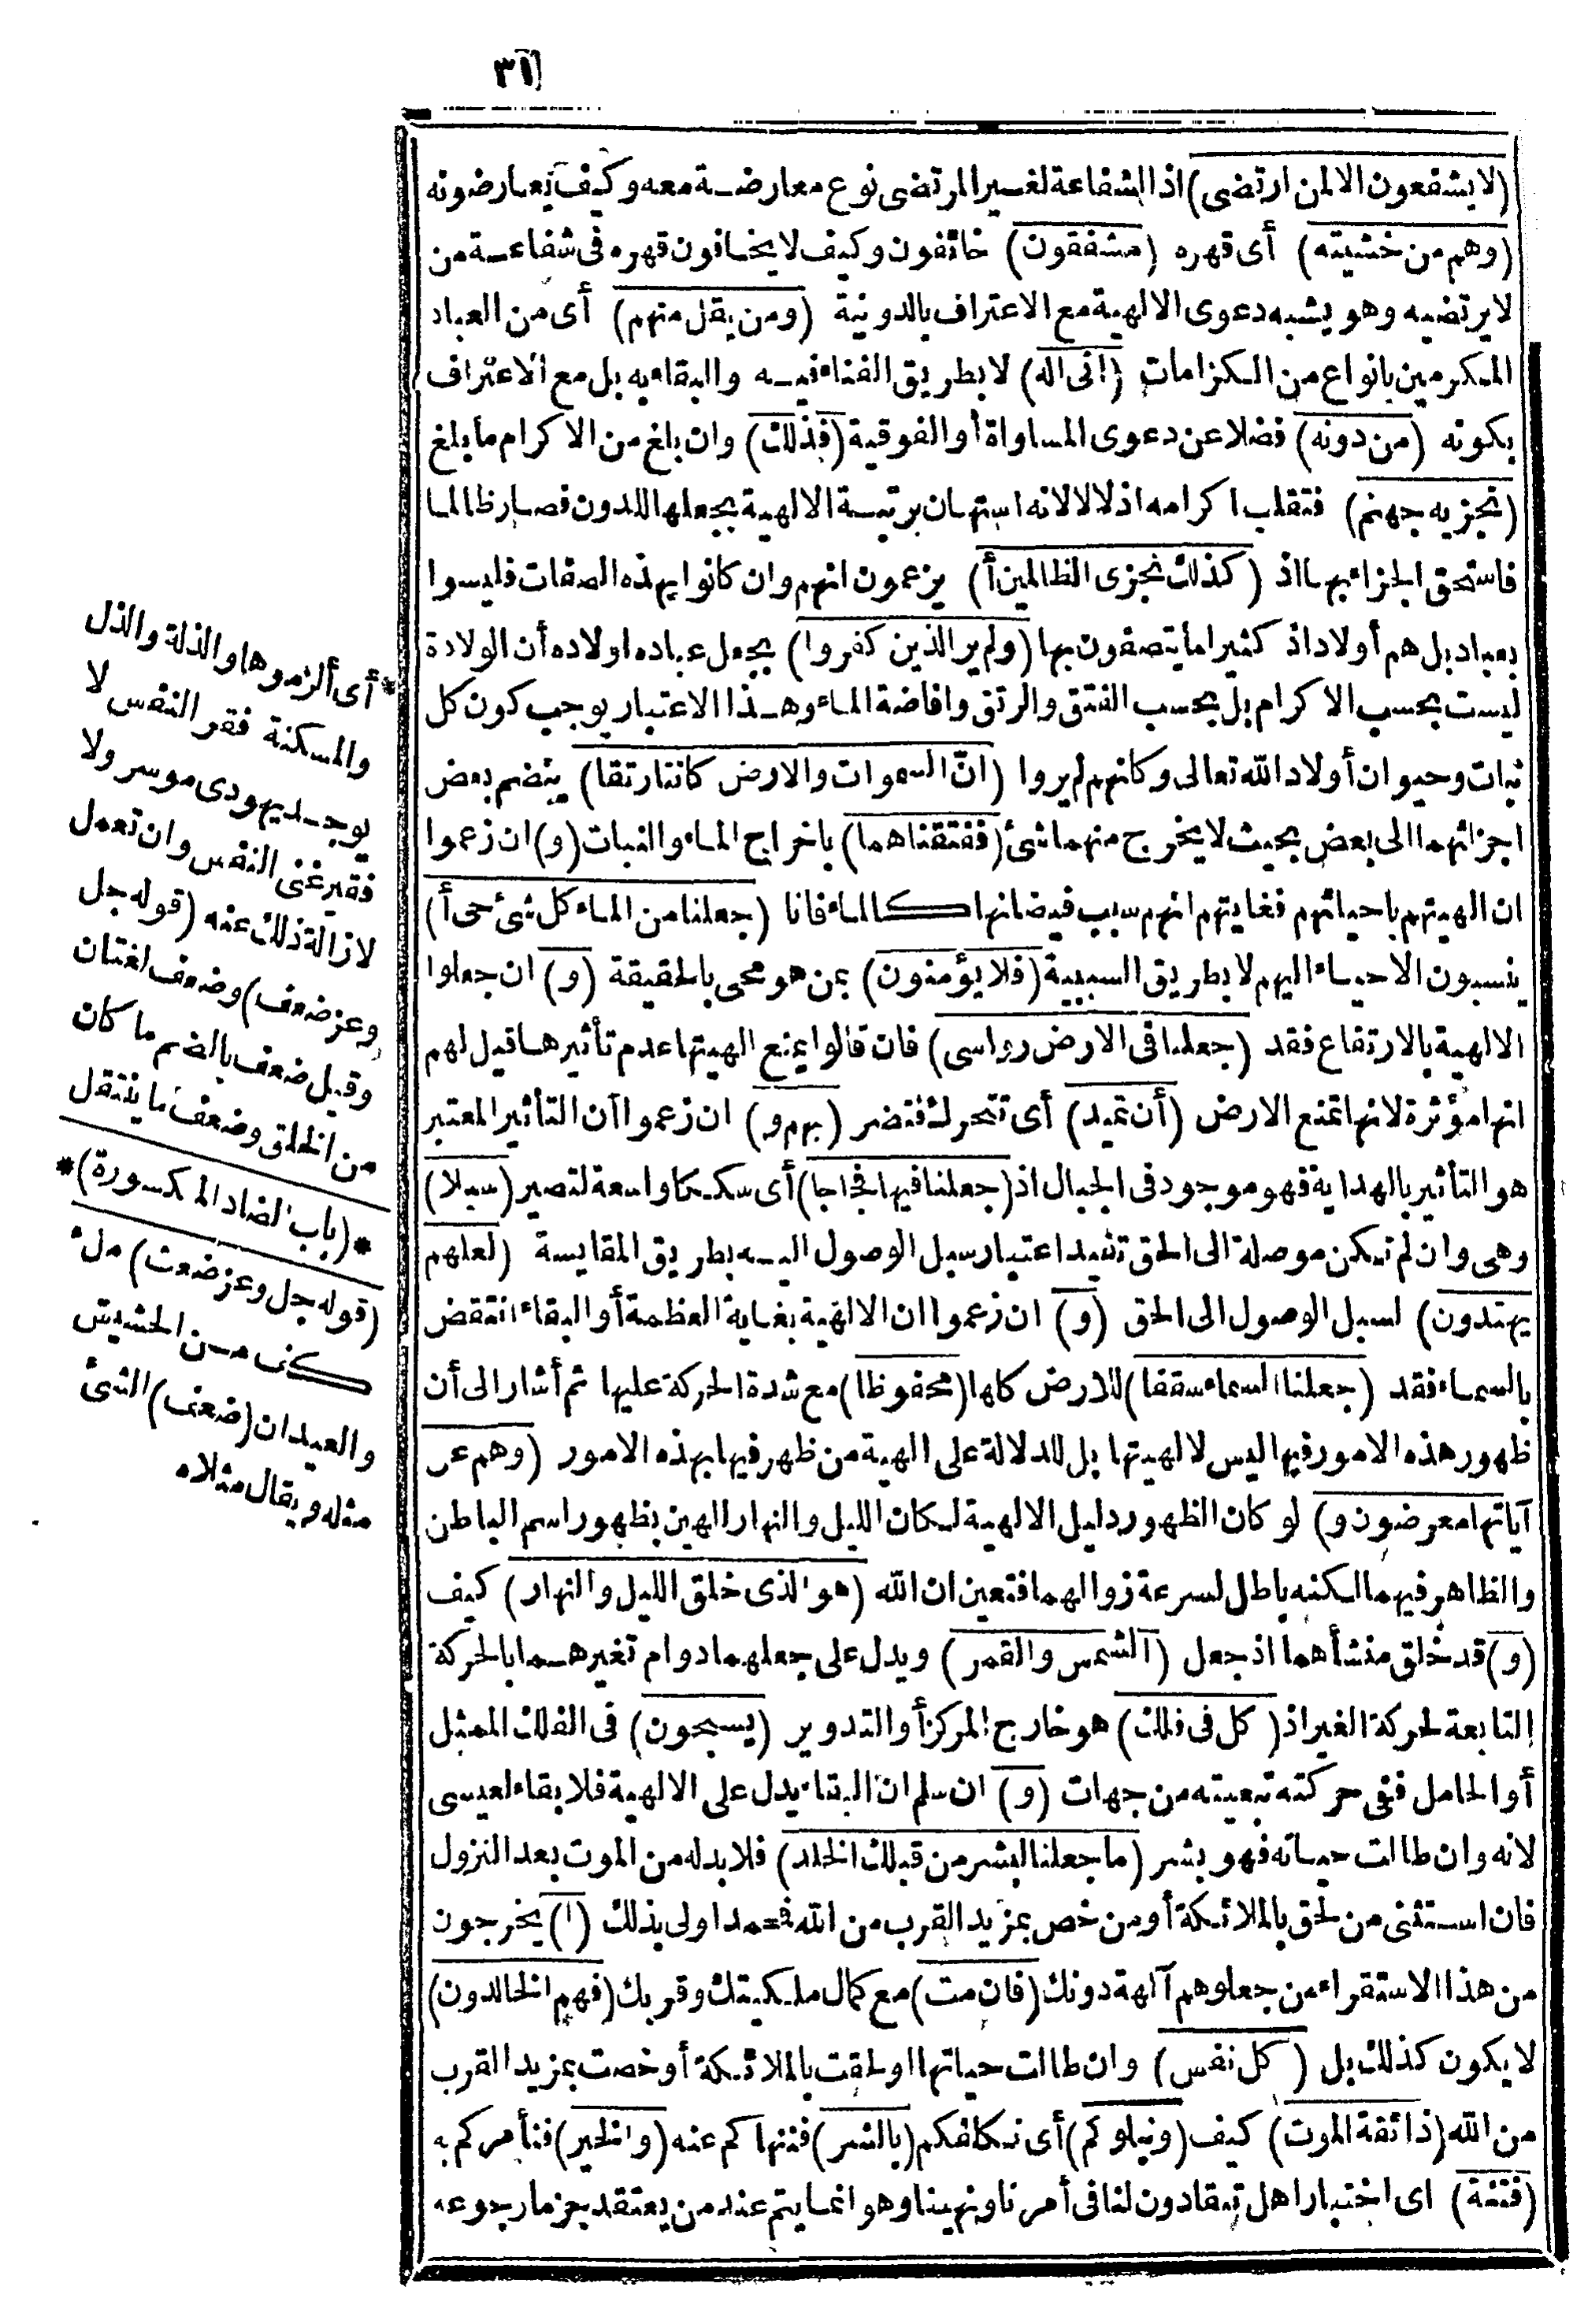 (لا يشفعون الا لمن ارتضى) اذ الشفاعة لغير المرتضى نوع معارضة معه وكيف يعارضونه
(وهم من خشيته) أى قهره (مشفقون) خائفون وكيف لا يخافون قهره فى شفاعة من
لا يرتضيه وهو يشبه دعوى الالهية مع الاعتراف بالدونية (ومن يقل منهم) أى من العباد
المكرمين بانواع من الكرامات (انى اله) لا بطريق الفناء فيه والبقاء به بل مع الاعتراف
بكونه (من دونه) فضلا عن دعوى المساواة أو الفوقية (فذلك) وان بلغ من الاكرام ما بلغ
(نجزيه جهنم) فتقلب اكرامه اذلالا لانه استهان برتبة الالهية بجعلها للدون فصار ظالما
فاستحق الجزاء بها اذ (كذلك نجزى الظالمين أ) يزعمون انهم وان كانوا بهذه الصفات فليسوا
بعباد بل هم أولاد اذ كثيرا ما يتصفون بها (ولم ير الذين كفروا) بجعل عباده اولاده أن الولادة
ليست بحسب الاكرام بل بحسب الفتق والرتق وافاضة الماء وهذا الاعتبار يوجب كون كل
نبات وحيوان أولاد الله تعالى وكانهم لم يروا (انّ السموات والارض كانتا رتقا) ينضم بعض
اجزائهما الى بعض بحيث لا يخرج منهما شئ (ففتقناهما) باخراج الماء والنبات (و) ان زعموا
ان الهيتهم باحيائهم فغايتهم انهم سبب فيضانها كالماء فانا (جعلنا من الماء كل شئ حى أ)
ينسبون الاحياء اليهم لا بطريق السببية (فلا يؤمنون) بمن هو محى بالحقيقة (و) ان جعلوا
الالهية بالارتفاع فقد (جعلنا فى الارض رواسى) فان قالوا يمنع الهيتها عدم تأثيرها قيل لهم
انها مؤثرة لانها تمنع الارض (أن تميد) أى تتحرك فتضر (بهم و) ان زعموا أن التأثير المعتبر
هو التأثير بالهداية فهو موجود فى الجبال اذ (جعلنا فيها فجاجا) أى سككا واسعة لتصير (سبلا)
وهى وان لم تكن موصلة الى الحق تفيد اعتبار سبل الوصول اليه بطريق المقايسة (لعلهم
يهتدون) لسبل الوصول الى الحق (و) ان زعموا ان الالهية بغاية العظمة أو البقاء انتقض
بالسماء فقد (جعلنا السماء سقفا) للارض كلها (محفوظا) مع شدة الحركة عليها ثم أشار الى أن
ظهور هذه الامور فيها ليس لالهيتها بل للدلالة على الهية من ظهر فيها بهذه الامور (وهم عن
آياتها معرضون و) لو كان الظهور دليل الالهية لكان الليل والنهار الهين بظهور اسم الباطن
والظاهر فيهما لكنه باطل لسرعة زوالهما فتعين ان الله (هو الذى خلق الليل والنهار) كيف
(و) قد خلق منشأهما اذ جعل (الشمس والقمر) ويدل على جعلهما دوام تغيرهما بالحركة
التابعة لحركة الغير اذ (كل فى فلك) هو خارج المركز أو التدوير (يسبحون) فى الفلك الممثل
أو الحامل ففى حركته تبعيته من جهات (و) ان سلم ان البقاء يدل على الالهية فلا بقاء لعيسى
لانه وان طالت حياته فهو بشر (ما جعلنا لبشر من قبلك الخلد) فلا بد له من الموت بعد النزول
فان استثنى من لحق بالملائكة أو من خص بمزيد القرب من الله فمحمد اولى بذلك (ا) يخرجون
من هذا الاستقراء من جعلوهم آلهة دونك (فان مت) مع كمال ملكيتك وقربك (فهم الخالدون)
لا يكون كذلك بل (كل نفس) وان طالت حياتها او لحقت بالملائكة أو خصت بمزيد القرب
من الله (ذائقة الموت) كيف (ونبلوكم) أى نكلفكم (بالشر) فننهاكم عنه (والخير) فنأمركم به
(فتنة) اى اختبارا هل تنقادون لنا فى أمرنا ونهينا وهو انما يتم عند من يعتقد جزما رجوعه
*أى ألزموها والذلة والذل
والمسكنة فقر النفس لا
يوجد يهودى موسر ولا
فقير غنى النفس وان تعمل
لازالة ذلك عنه (قوله جل
وعز ضعف) وضعف لغتان
وقيل ضعف بالضم ما كان
من الخلق وضعف ما ينتقل
*(باب الضاد المكسورة)*
(قوله جل وعز ضغث) ملء
كف من الحشيش
والعيدان (ضعف) الشئ
مثله ويقال مثلاه